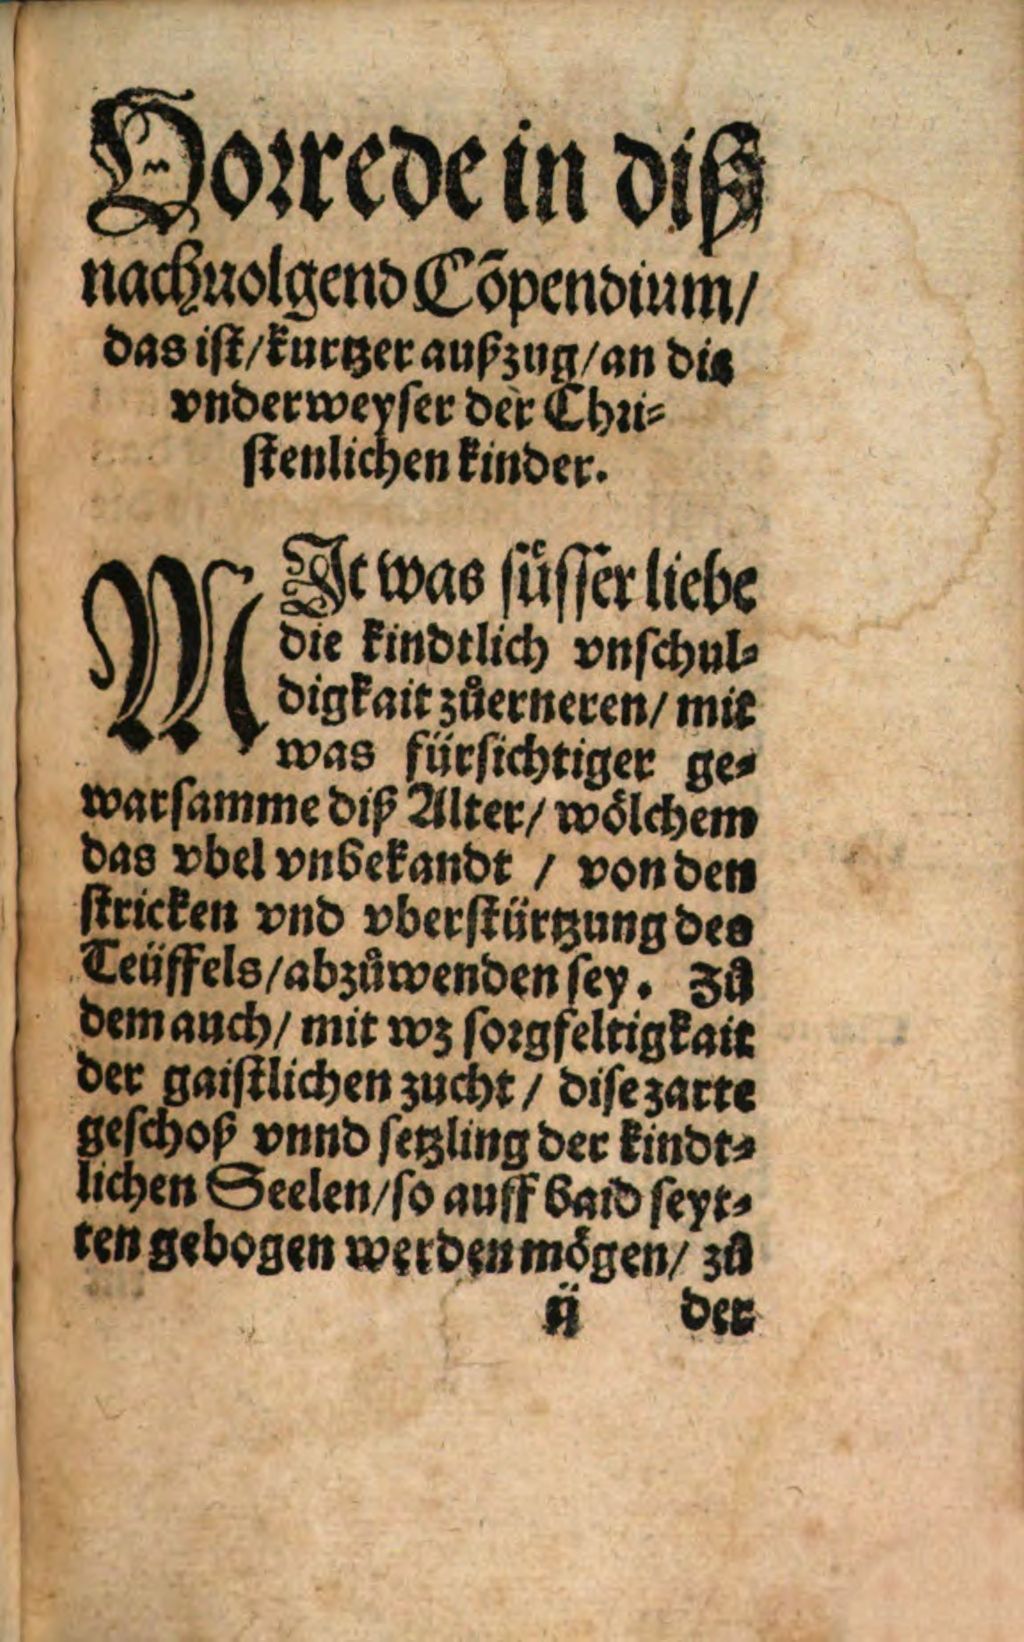 Vorrede in diß
nachuolgend Cõpendium/
das ist/kurtzer außzug/an die
vnderweyser der Chri⸗
stenlichen kinder.
MJt was süsser liebe
die kindtlich vnschul⸗
digkait zůerneren/ mit
was fürsichtiger ge⸗
warsamme diß Alter/ wölchem
das vbel vnbekandt / von den
stricken vnd vberstürtzung des
Teüffels/abzůwenden sey. Zů
dem auch/ mit wz sorgfeltigkait
der gaistlichen zucht / dise zarte
geschoß vnnd setzling der kindt⸗
lichen Seelen/so auff baid seyt⸗
ten gebogen werden mögen/ zů
ij der